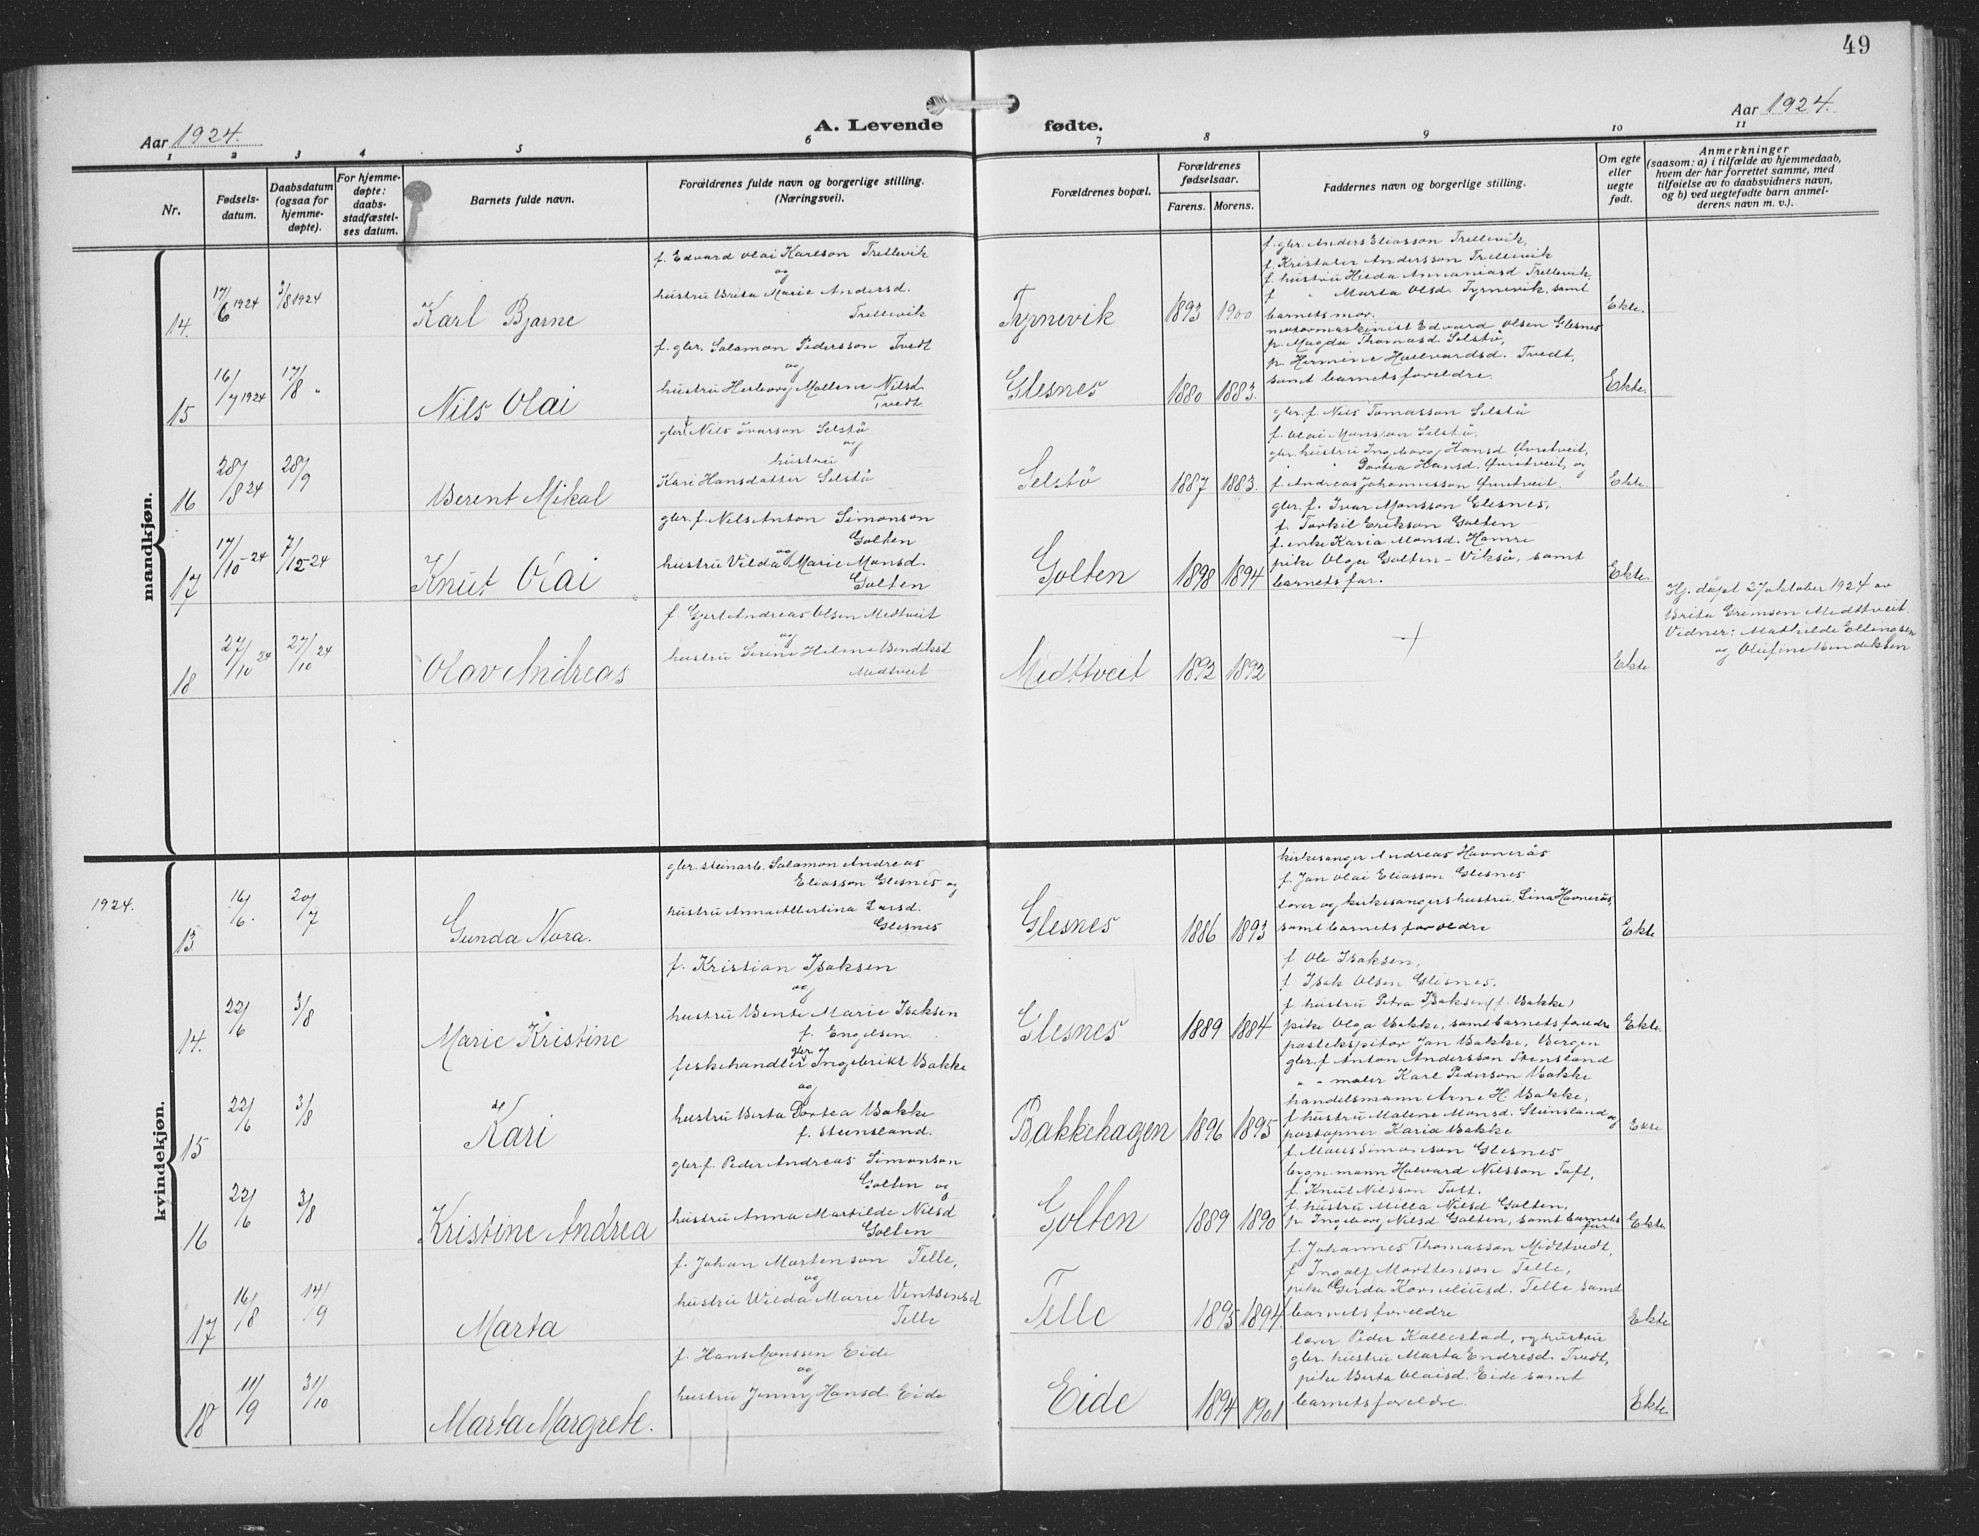 49
Aar 1924.
A. Levende fødte.
Aar 1924.
1 2 3 4 5 6 7 8 9 10 11
Nr.
Fødsels-
datum.
Daabsdatum
(ogsaa for
hjemme-
døpte).
For hjemme-
døpte:
daabs-
stadfæstel-
ses datum.
Barnets fulde navn.
Forældrenes fulde navn og borgerlige stilling.
(Næringsvei).
Forældrenes bopæl.
Forældrenes
fødselsaar.
Farens. Morens.
Faddernes navn og borgerlige stilling.
Om egte
eller
uegte
født.
Anmerkninger
(saasom: a) i tilfælde av hjemmedaab,
hvem der har forrettet samme, med
tilføielse av to daabsvidners navn,
og b) ved uegtefødte barn anmel-
derens navn m. v.).
mandkjøn.
14. 17/6 1924 3/8 1924
Karl Bjarne
f. Edvard Olai Karlson Trellevik
og
hustru Brita Marie Andersd.
Trellevik
Tyrnevik 1893 1900
f. gbr. Anders Eliasson Trellevik,
f. Kristofer Andersson Trellevik
f. hustru Hilda Annaniasd Trellevik.
f. " Marta Olsd. Tyrnevik, samt
barnets mor.
Ekte.
15 16/7 1924 17/8 "
Nils Olai
f. gbr. Salamon Pedersson Tvedt
og
hustru Herborg Mallene Nilsd.
Tvedt
Glesnes 1880 1883.
motormaskinist Edvard Olsen Glesnes
p. Magda Thomasd. Selstö,
p. Hermine Hallvardsd. Tvedt,
samt barnets foreldre.
Ekte.
16 28/8 24 28/9
Berent Mikal
gbr. Nils Ivarson Selstö
og
hustru
Kari Hansdatter Selstö
Selstö 1887 1883.
gbr. f. Nils Tomasson Selstö
f. Olai Monsson Selstö,
gbr. hustru Ingeborg Hansd Övretveit,
" " Dortea Hansd. Övretveit, og
f. Andreas Johannesson Övretveit.
Ekte.
17 17/10-24 7/12-24
Knut Olai
gbr. f. Nils Anton Simonson
Golten
og
hustru Vilda Marie Monsd.
Golten
Golten 1898 1894
gbr. f. Ivar Monsson Glesnes,
f. Torkil Erikson Golten
f. enke Karia Monsd. Hamre
pike Olga Golten - Viksö, samt
barnets far.
Ekte.
18 27/10 24 27/10 24
Olav Andreas
f. Gjert Andreas Olsen Midtveit
og
hustru Serine Helene Bendiksd
Midtveit
Midttveit 1892 1892
+
Ekte
Hj. döpt 27 oktober 1924 av
Brita Grimsen Midttveit
Vidner: Mathilde Ellingsen
og Olufine Bendiksen
kvindekjøn.
1924.
13 16/6. 20/7
Gunda Nora.
gbr. steinarb. Salamon Andreas
Eliasson Glesnes og
hustru Anna Albertina Larsd.
Glesnes
Glesnes 1886 1893
kirkesanger Andreas Havnerås
f. Jan Olai Eliasson Glesnes
lærer og kirkesangers hustru. Lina Havnerås,
samt barnets foreldre
Ekte
14. 22/6 3/8
Marie Kristine
f. Kristian Isaksen
og
hustru Bente Marie Isaksen
f. Engelsen.
Glesnes 1889 1884
f. Ole Isaksen,
f. Isak Olsen Glesnes,
f. hustru Petra Isaksen (f. Bakke)
pike Olga Bakke, samt barnets foreldre
Ekte.
15 22/6 3/8
Kari
gbr.
fiskehandler Ingebrikt Bakke
og
hustru Berta Dortea Bakke
f. Steinsland.
Bakkehagen 1896 1895
postekspitør Jan Bakke, Bergen
gbr. f. Anton Andersson Stensland
" " maler Karl Pederson Bakke
handelsmann Arne H. Bakke,
f. hustru Malene Monsd. Steinsland og
postopner Karia Bakke
Ekte
16 22/6 3/8
Kristine Andrea
gbr. f. Peder Andreas Simonson
Golten og
hustru Anna Martilde Nilsd
Golten
Golten 1889 1890
f. Mons Simonson Glesnes
bygn. mann Halvard Nilsson Toft,
f. Knut Nilsson Toft.
f. hustru Milla Nilsd Golten,
p. Ingeborg Nilsd Golten, samt barnets
far.
Ekte
17 16/8 14/9
Marta
f. Johan Martenson Telle,
og
hustru Wilda Marie Ventsensd
Telle
Telle 1895 1894.
f. Johannes Thomasson Midttvedt,
f. Ingolf Morttenson Telle,
pike Gerda Korneliusd. Telle samt
barnets foreldre
Ekte
18 11/9 31/10
Marta Margrete.
f. Hans Monssen Eide
og
hustru Jenny Hansd. Eide
Eide 1894 1901
lærer Peder Kallestad, og hustru
gbr. hustru Marta Endresd. Tvedt,
pike Berta Olaisd. Eide samt
barnets foreldre.
Ekte.